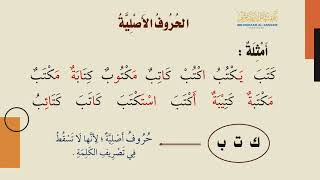 الحُرُوفُ الأَصْلِيَّةُ
أَمْثِلَةٌ :
كَتَبَ يَكْتُبُ اكْتُبْ كَاتِبٌ مَكْتُوبٌ كِتَابَةٌ مَكْتَبٌ
مَكْتَبَةٌ كَتِيْبَةٌ أَكْتَبَ اسْتَكْتَبَ كَاتَبَ كَتَائِبُ
ك ت ب
حُرُوفٌ أَصْلِيَّةٌ لِأَنَّهَا لَا تَسْقُطُ
فِي تَصْرِيفِ الكَلِمَةِ.